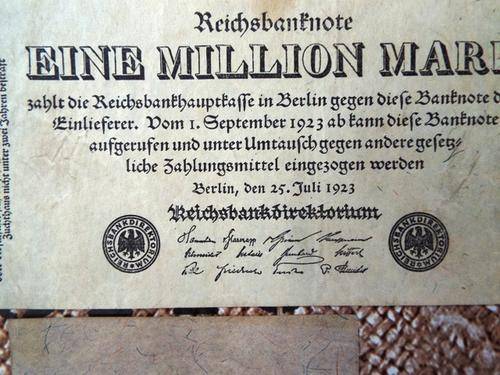 Reichsbanknote
EINE MILLION MAR
zahlt die Reichsbankhauptkasse in Berlin gegen diese Banknote d
Einlieferer. Vom 1. September 1923 ab kann diese Banknote
aufgerufen und unter Umtausch gegen andere gesetz-
liche Zahlungsmittel eingezogen werden
Berlin, den 25. Juli 1923
Reichsbankdirektorium
REICHSBANKDIREKTORIUM
REICHSBANKDIREKTORIUM
Zuchthaus nicht unter zwei Jahren bestraft